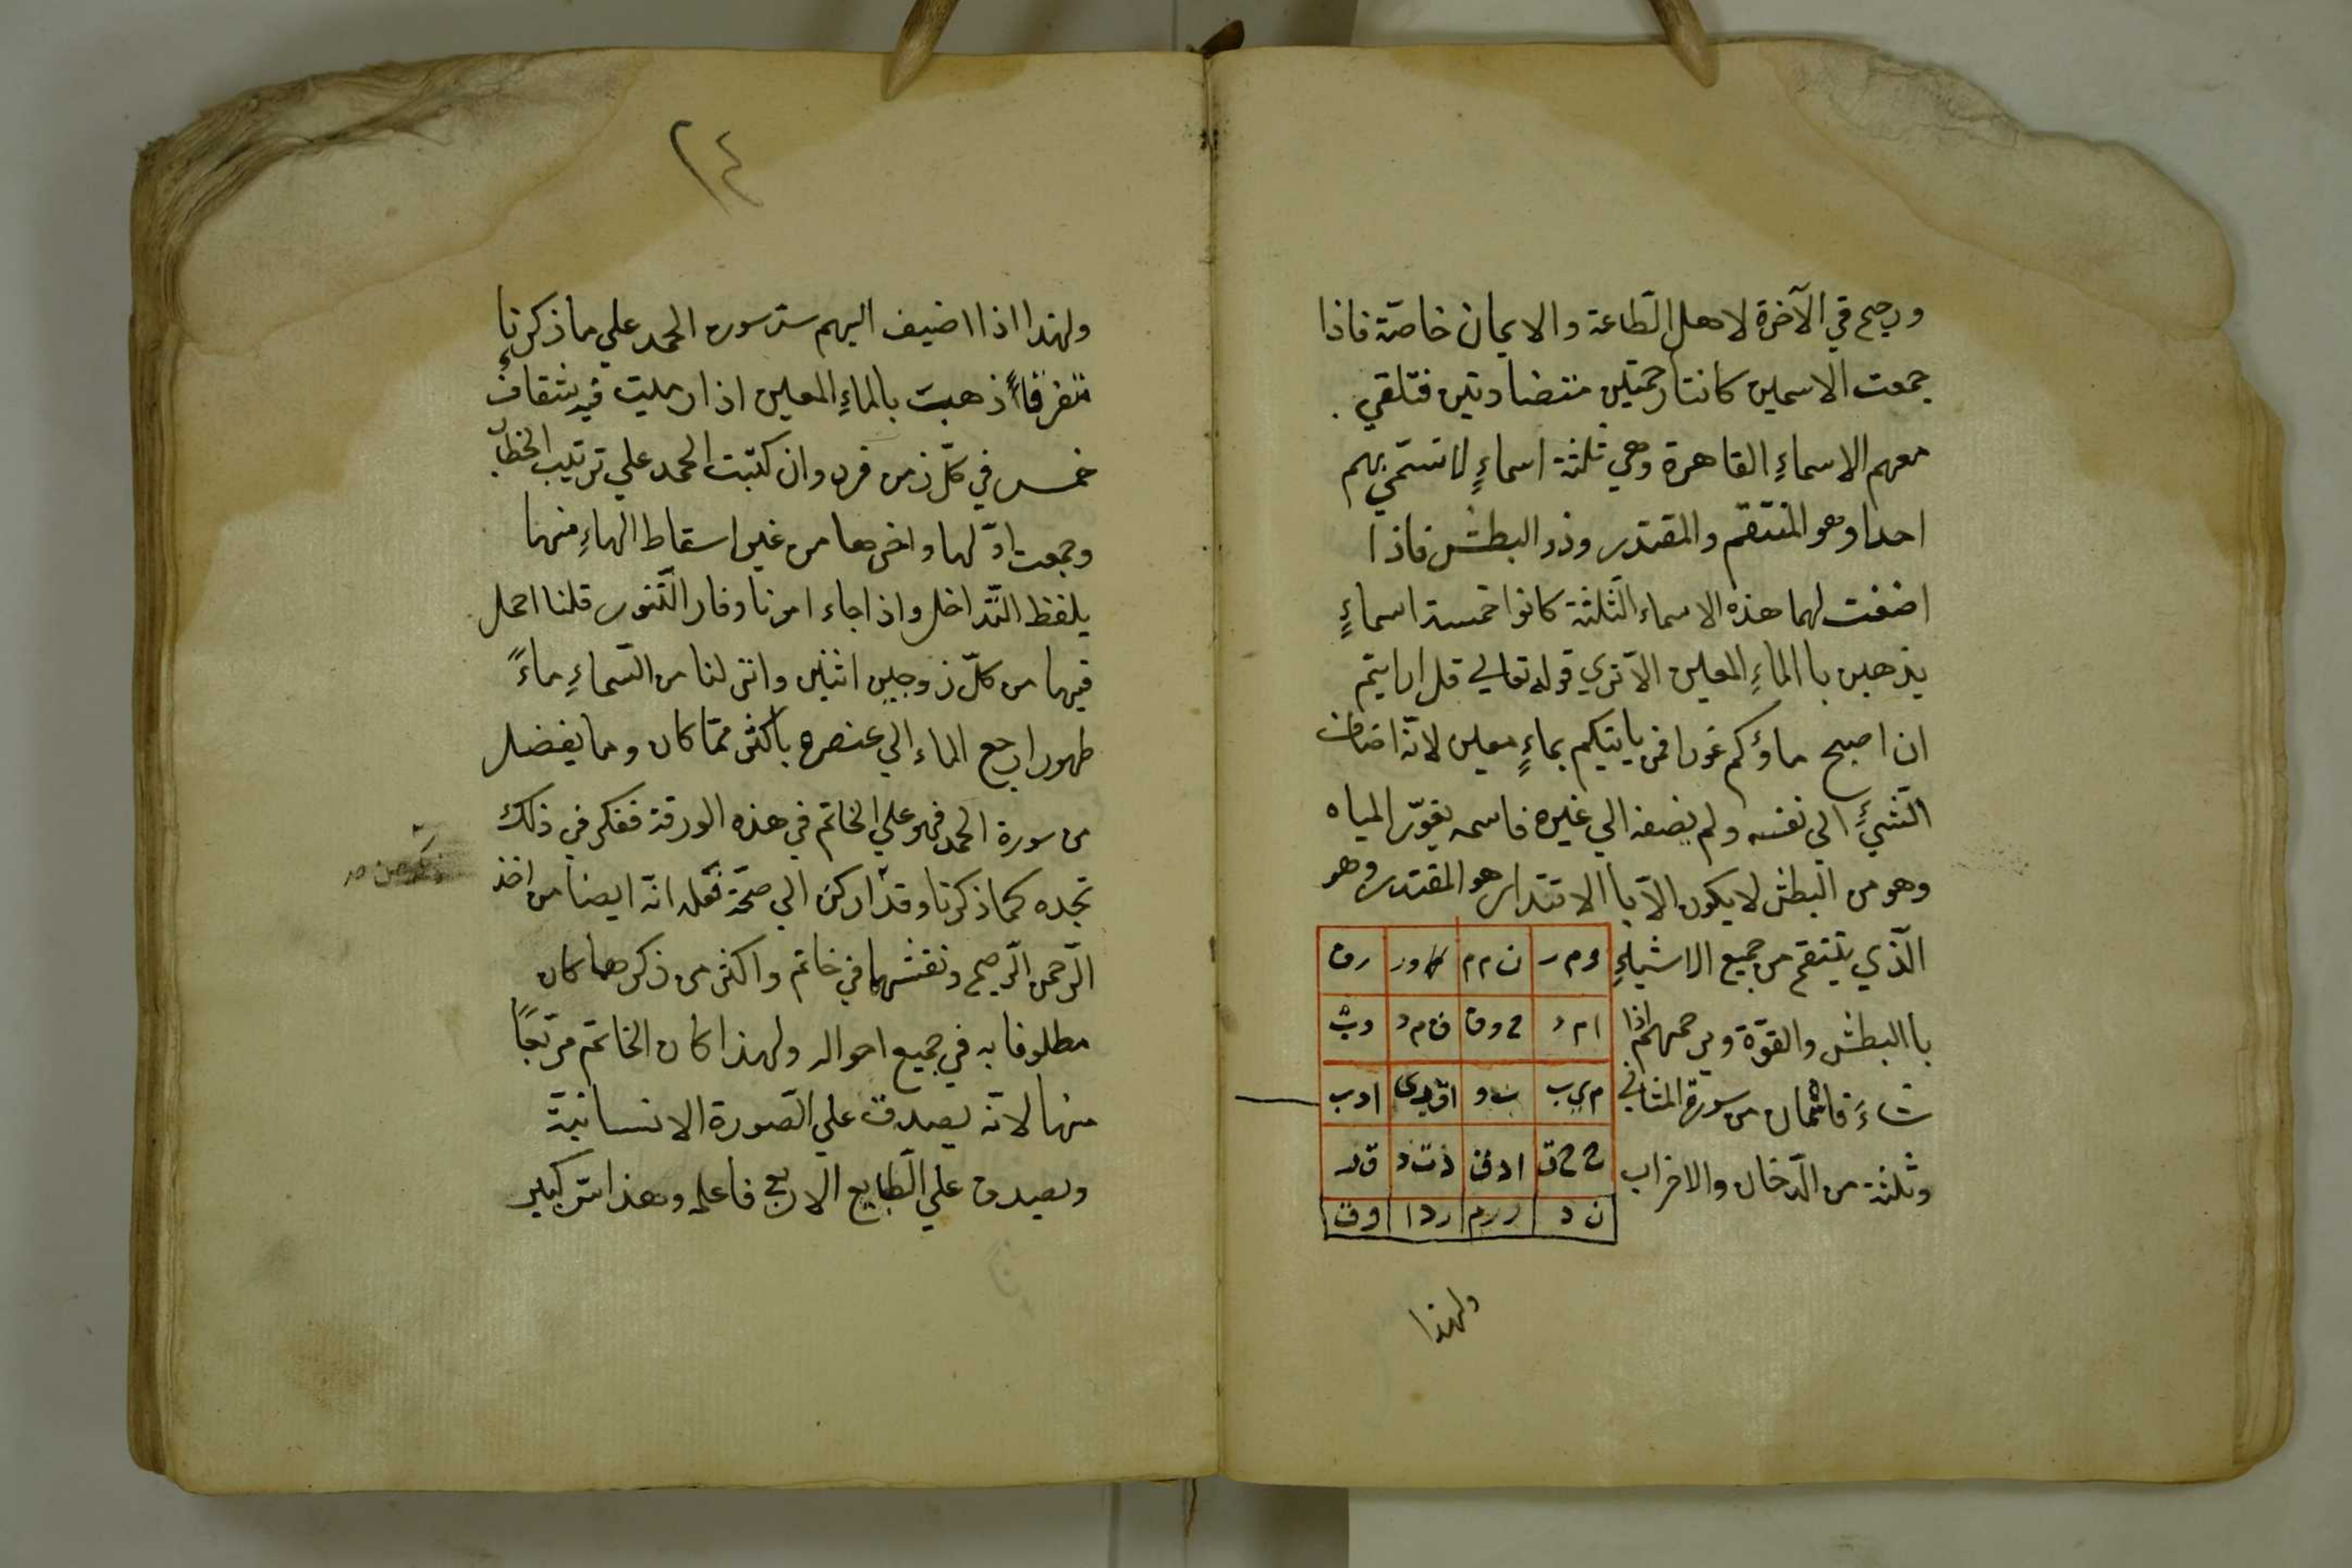 ورحيم في الآخرة لاهل الطّاعة والايمان خاصّة فاذا
جمعت الاسمين كانتا رحمتين متضادتين فتلقي
معهم الاسماءِ القاهرة وهي ثلثة اسماءٍ لا تسمّي بهم
احدا وهو المنتقم والمقتدر وذو البطش فاذا
اضفت لهما هذه الاسماء الثّلثة كانوا خمسة اسماءٍ
يذهبن با الماءِ المعين الا تري قوله تعالي قل ارايتم
ان اصبح ماؤكم غورا فمن ياتيكم بماءٍ معين لانّه اضاف
الشيءِ الي نفسه ولم يضفه الي غيره فاسمه يغوّر المياه
وهو من البطش لا يكون الا با الاقتدار هو المقتدر وهو
الّذي ينتقم من جميع الاشياءِ
با البطش والقوّة ويرحمهم اذا
شاءَ فاثمان من سورة المثاني
وثلثة من الدّخان والاخراب
وم ر ن م م ور رق
ام د ح وق ق م د وب
م ي ب اق دي ادب
ح ح ق ادق ذت د ق د
ن د ررم ردا وق
ولهذا
٢٤
ولهذا اذا اضيف اليهم ستّ سوره الحمد علي ما ذكرنا
متفرقاً ذهبت بالماءِ المعين اذا رميت فيه بثقاف
خمس في كلّ زمن فرد وان كتبت الحمد علي ترتيب الخطاب
وجمعت اوّلها واخرها من غير اسقاط الهاءِ منهما
بلفظ التّداخل واذا جاء امرنا وفار التّنور قلنا احمل
فيها من كلّ زوجين اثنين وانزلنا من السّماءِ ماءً
طهورا رجع الماء الي عنصره باكثر ممّا كان وما يفضل
من سورة الحمد فهو علي الخاتم في هذه الورقة ففكر في ذلك
تجده كما ذكرنا وقد اركن الي صحّة نقله انّه ايضا من اخذ
الرّحمن الرّحيم ونقشهما في خاتم واكثر من ذكرهما كان
مطلوفا به في جميع احواله ولهذا كان الخاتم مربّعًا
منها لانّه يصدق علي الصّورة الانسانيّة
ويصدق علي الطّبايع الاربع فاعلمه وهذا سرّ كبير